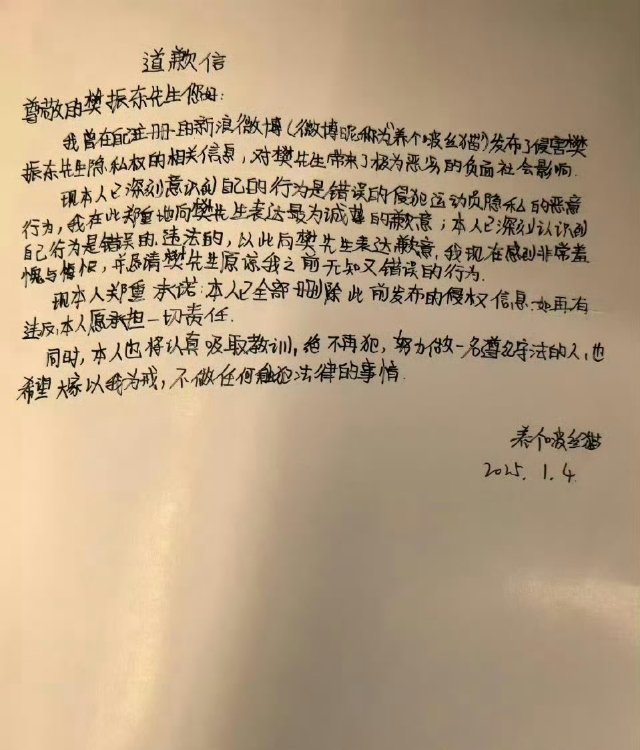 道歉信
尊敬的樊振东先生您好:
我曾在配注册的新浪微博(微博昵称为"养个啵丝猫)发布了侵害樊
振东先生隐私权的相关信息,对樊先生带来了极为恶劣的负面社会影响.
现本人已深刻意识到自己的行为是错误的侵犯运动员隐私的恶意
行为,我在此郑重地向樊先生表达最为诚挚的歉意;本人已深刻认识到
自己行为是错误的.违法的,以此向樊先生表达歉意,我现在感到非常羞
愧与悔恨,并恳请樊先生原谅我之前无知又错误的行为.
现本人郑重承诺:本人已全部删除此前发布的侵权信息.如再有
违反,本人愿承担一切责任.
同时,本人也将认真吸取教训,绝不再犯,努力做一名遵纪守法的人,也
希望大家以我为戒,不做任何触犯法律的事情.
养个啵丝猫
2025.1.4